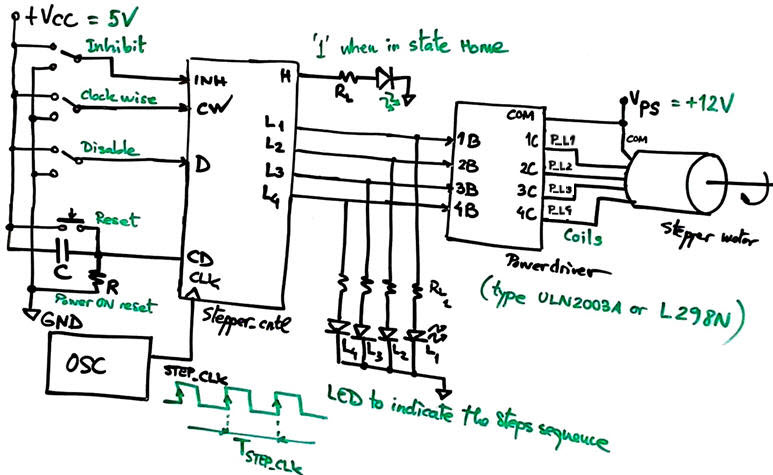 +Vcc = 5V
Inhibit
Clockwise
Disable
Reset
C
R
Power ON reset
GND
OSC
INH
CW
D
CD
CLK
H
L1
L2
L3
L4
Stepper_cntl
'1' when in state Home
RL
1B
2B
3B
4B
COM
1C
2C
3C
4C
Powerdriver
(type ULN2003A or L298N)
P_L1
P_L2
P_L3
P_L4
Coils
VPS = +12V
COM
Stepper motor
RL
L4 L3 L2 L1
LED to indicate the steps sequence
STEP_CLK
TSTEP_CLK